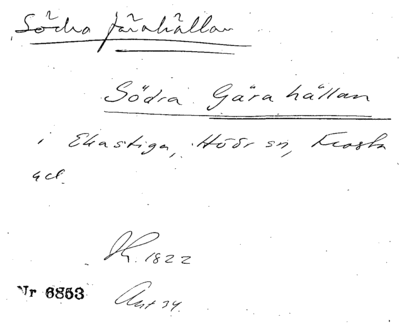 Södra Jårahållan
Södra Gårahållan
i Ekastiga, Höör sn, Frosta
hd.
K. 1822
Nr 6853
Akt 34.